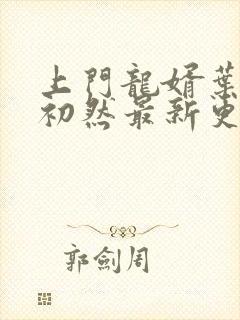 上門龍婿葉
初然最新更
郭劍周